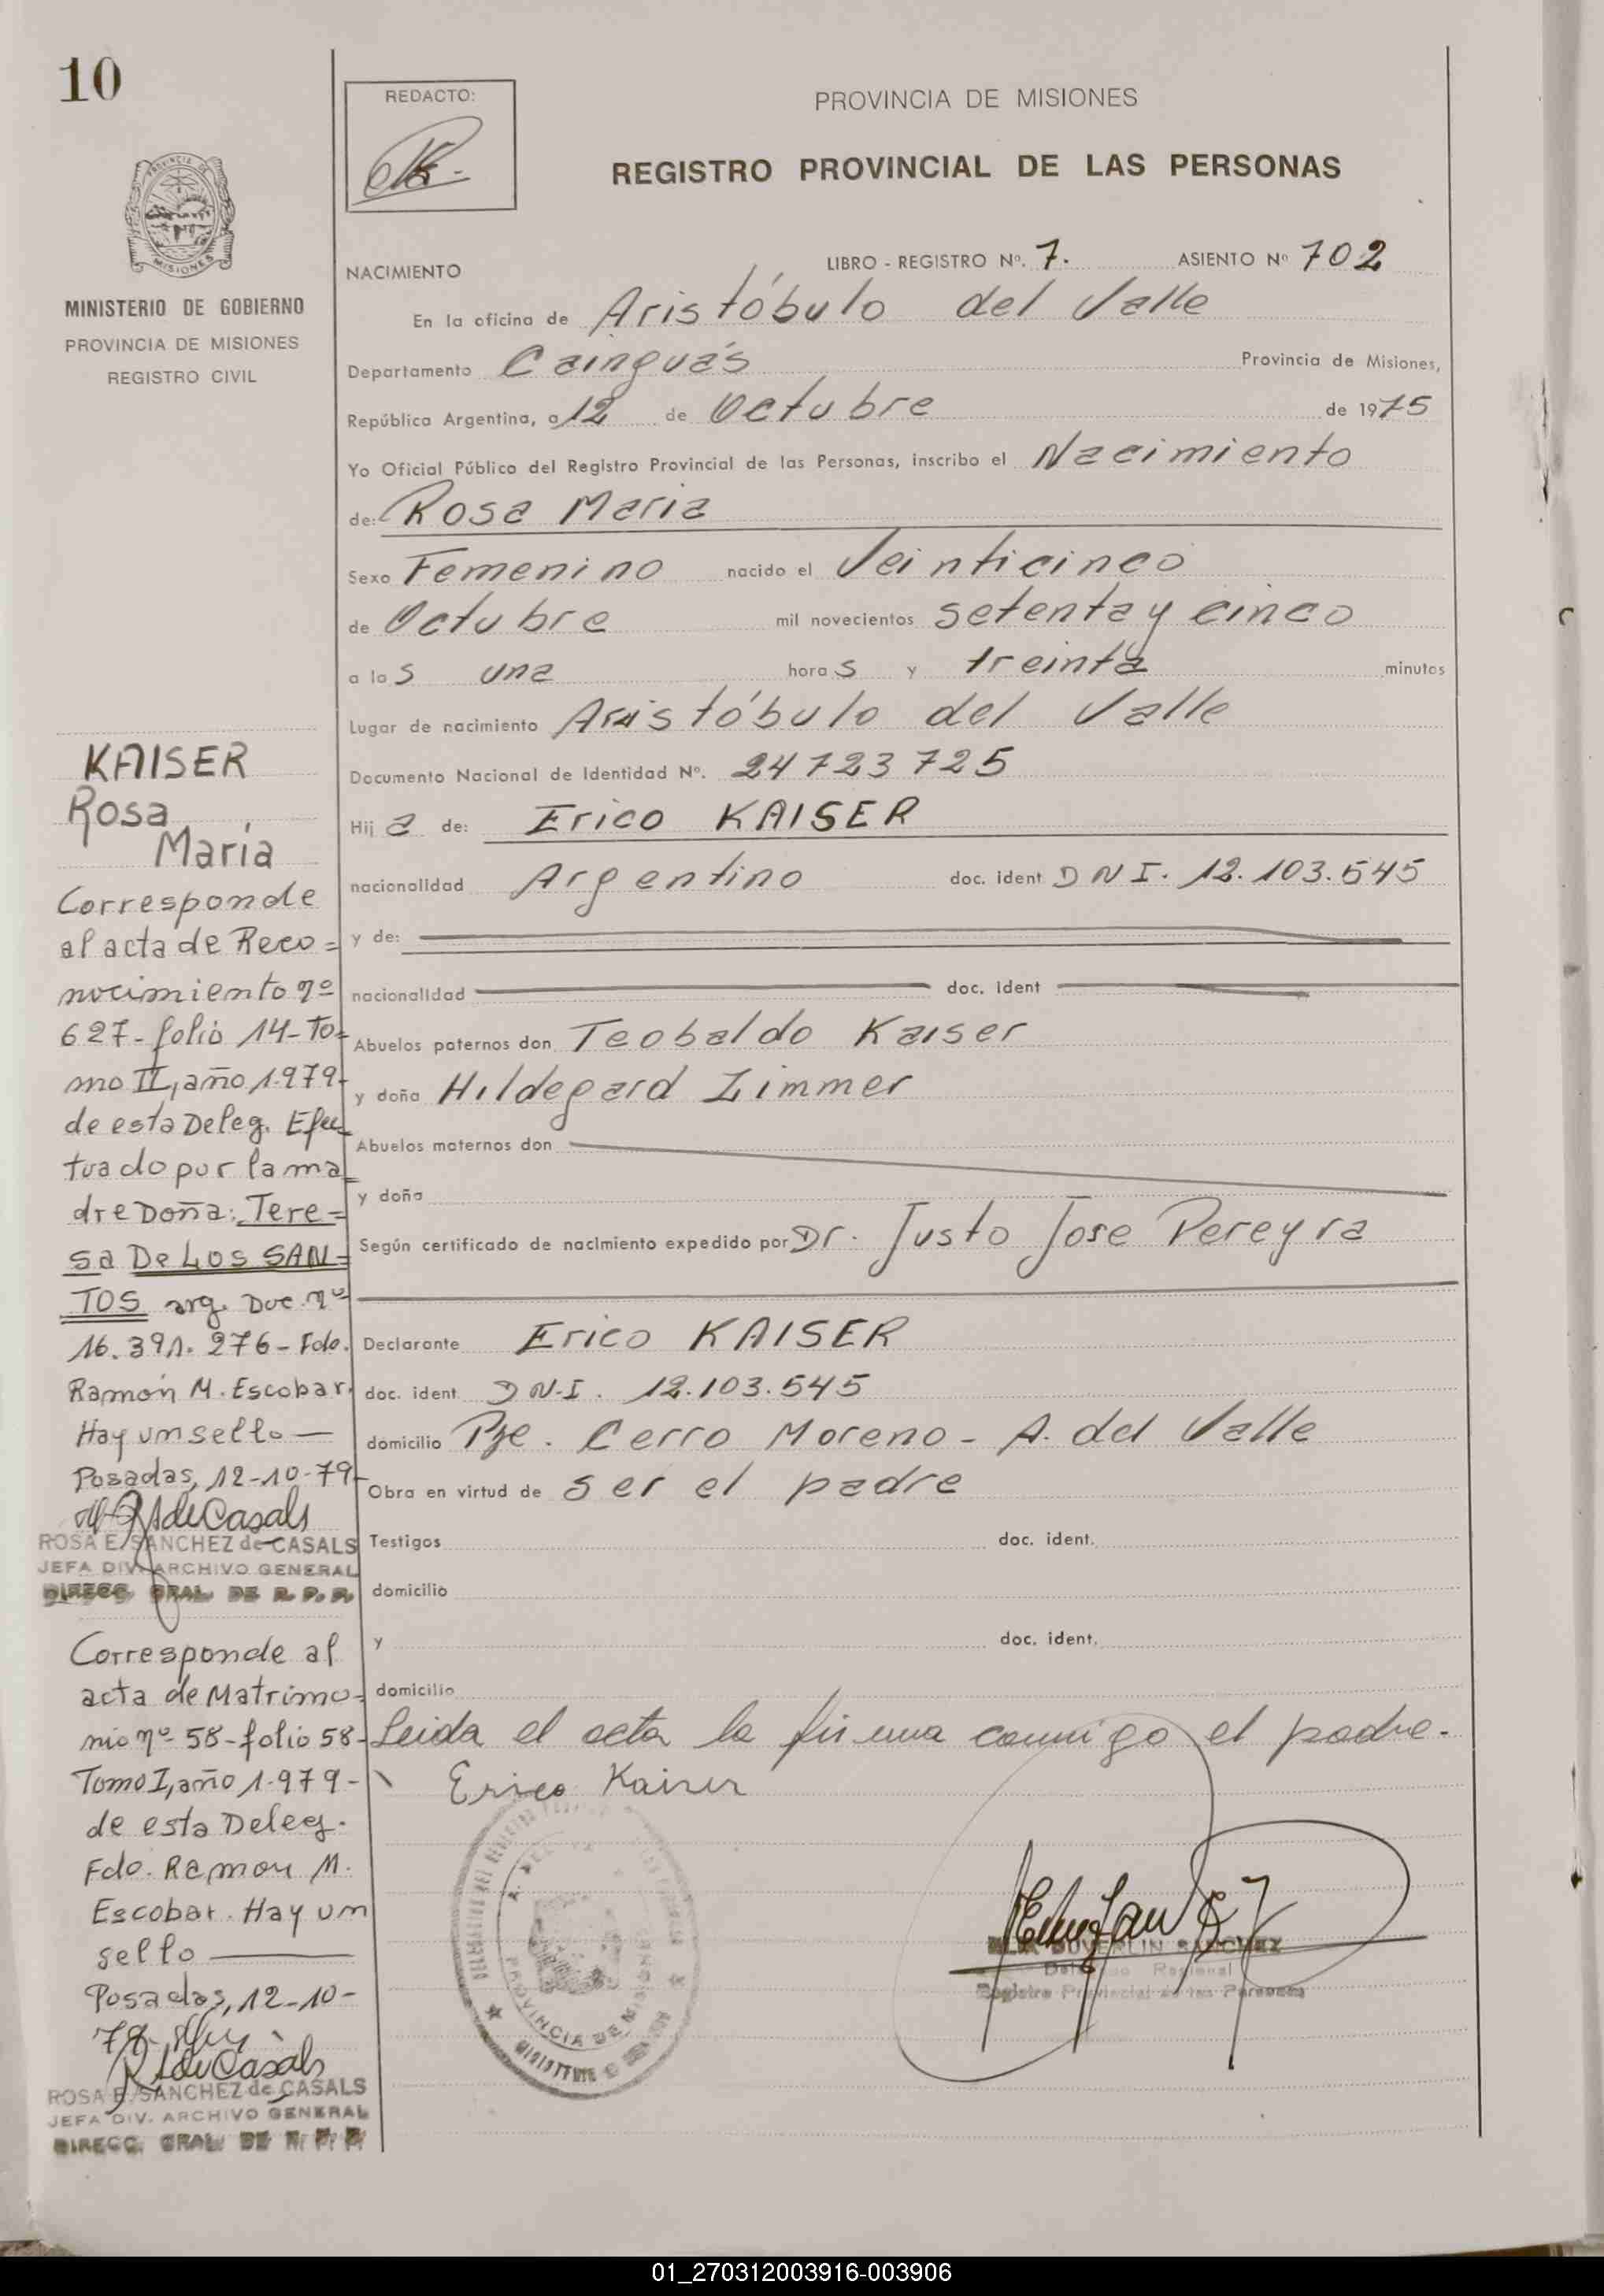 10
REDACTO:
PROVINCIA DE MISIONES
REGISTRO PROVINCIAL DE LAS PERSONAS
PROVINCIA DE
MISIONES
MINISTERIO DE GOBIERNO
PROVINCIA DE MISIONES
REGISTRO CIVIL
NACIMIENTO
LIBRO - REGISTRO Nº. 7. ASIENTO Nº 702
En la oficina de Aristóbulo del Valle
Departamento Cainguás Provincia de Misiones,
República Argentina, a 12 de Octubre de 1975
Yo Oficial Público del Registro Provincial de las Personas, inscribo el Nacimiento
de: Rosa Maria
Sexo Femenino nacido el Veinticinco
de Octubre mil novecientos setenta y cinco
a las una horas y treinta minutos
Lugar de nacimiento Aristóbulo del Valle
Documento Nacional de Identidad Nº. 24723725
Hija de: Erico KAISER
nacionalidad Argentino doc. ident DNI. 12.103.545
y de:
nacionalidad doc. ident
Abuelos paternos don Teobaldo Kaiser
y doña Hildegard Zimmer
Abuelos maternos don
y doña
Según certificado de nacimiento expedido por Dr. Justo Jose Pereyra
Declarante Erico KAISER
doc. ident. DN.I. 12.103.545
domicilio Pje. Cerro Moreno - A. del Valle
Obra en virtud de ser el padre
Testigos doc. ident.
domicilio
y doc. ident.
domicilio
Leida el acta la firma conmigo el padre.
Erico Kaiser
PROVINCIA DE MISIONES
SANCHEZ
Regional
Registro Provincial de las Personas
KAISER
Rosa
María
Corresponde
al acta de Reco=
nocimiento nº
627-folio 14-To=
mo II, año 1.979-
de esta Deleg. Efec
tuado por la ma=
dre Doña: Tere=
sa De LOS SAN=
TOS arg. Doc. nº
16.391.276-Fdo.
Ramón M. Escobar.
Hay un sello—
Posadas, 12-10-79-
RSdeCasals
ROSA E. SANCHEZ de CASALS
JEFA DIV. ARCHIVO GENERAL
DIRECC. GRAL. DE R. P. P.
Corresponde al
acta de Matrimo-
nio nº 58-folio 58-
Tomo I, año 1.979-
de esta Deleg.
Fdo. Ramon M.
Escobar. Hay un
sello
Posadas, 12-10-
79-
RSdeCasals
ROSA E. SANCHEZ de CASALS
JEFA DIV. ARCHIVO GENERAL
DIRECC. GRAL. DE R. P. P.
01_270312003916-003906